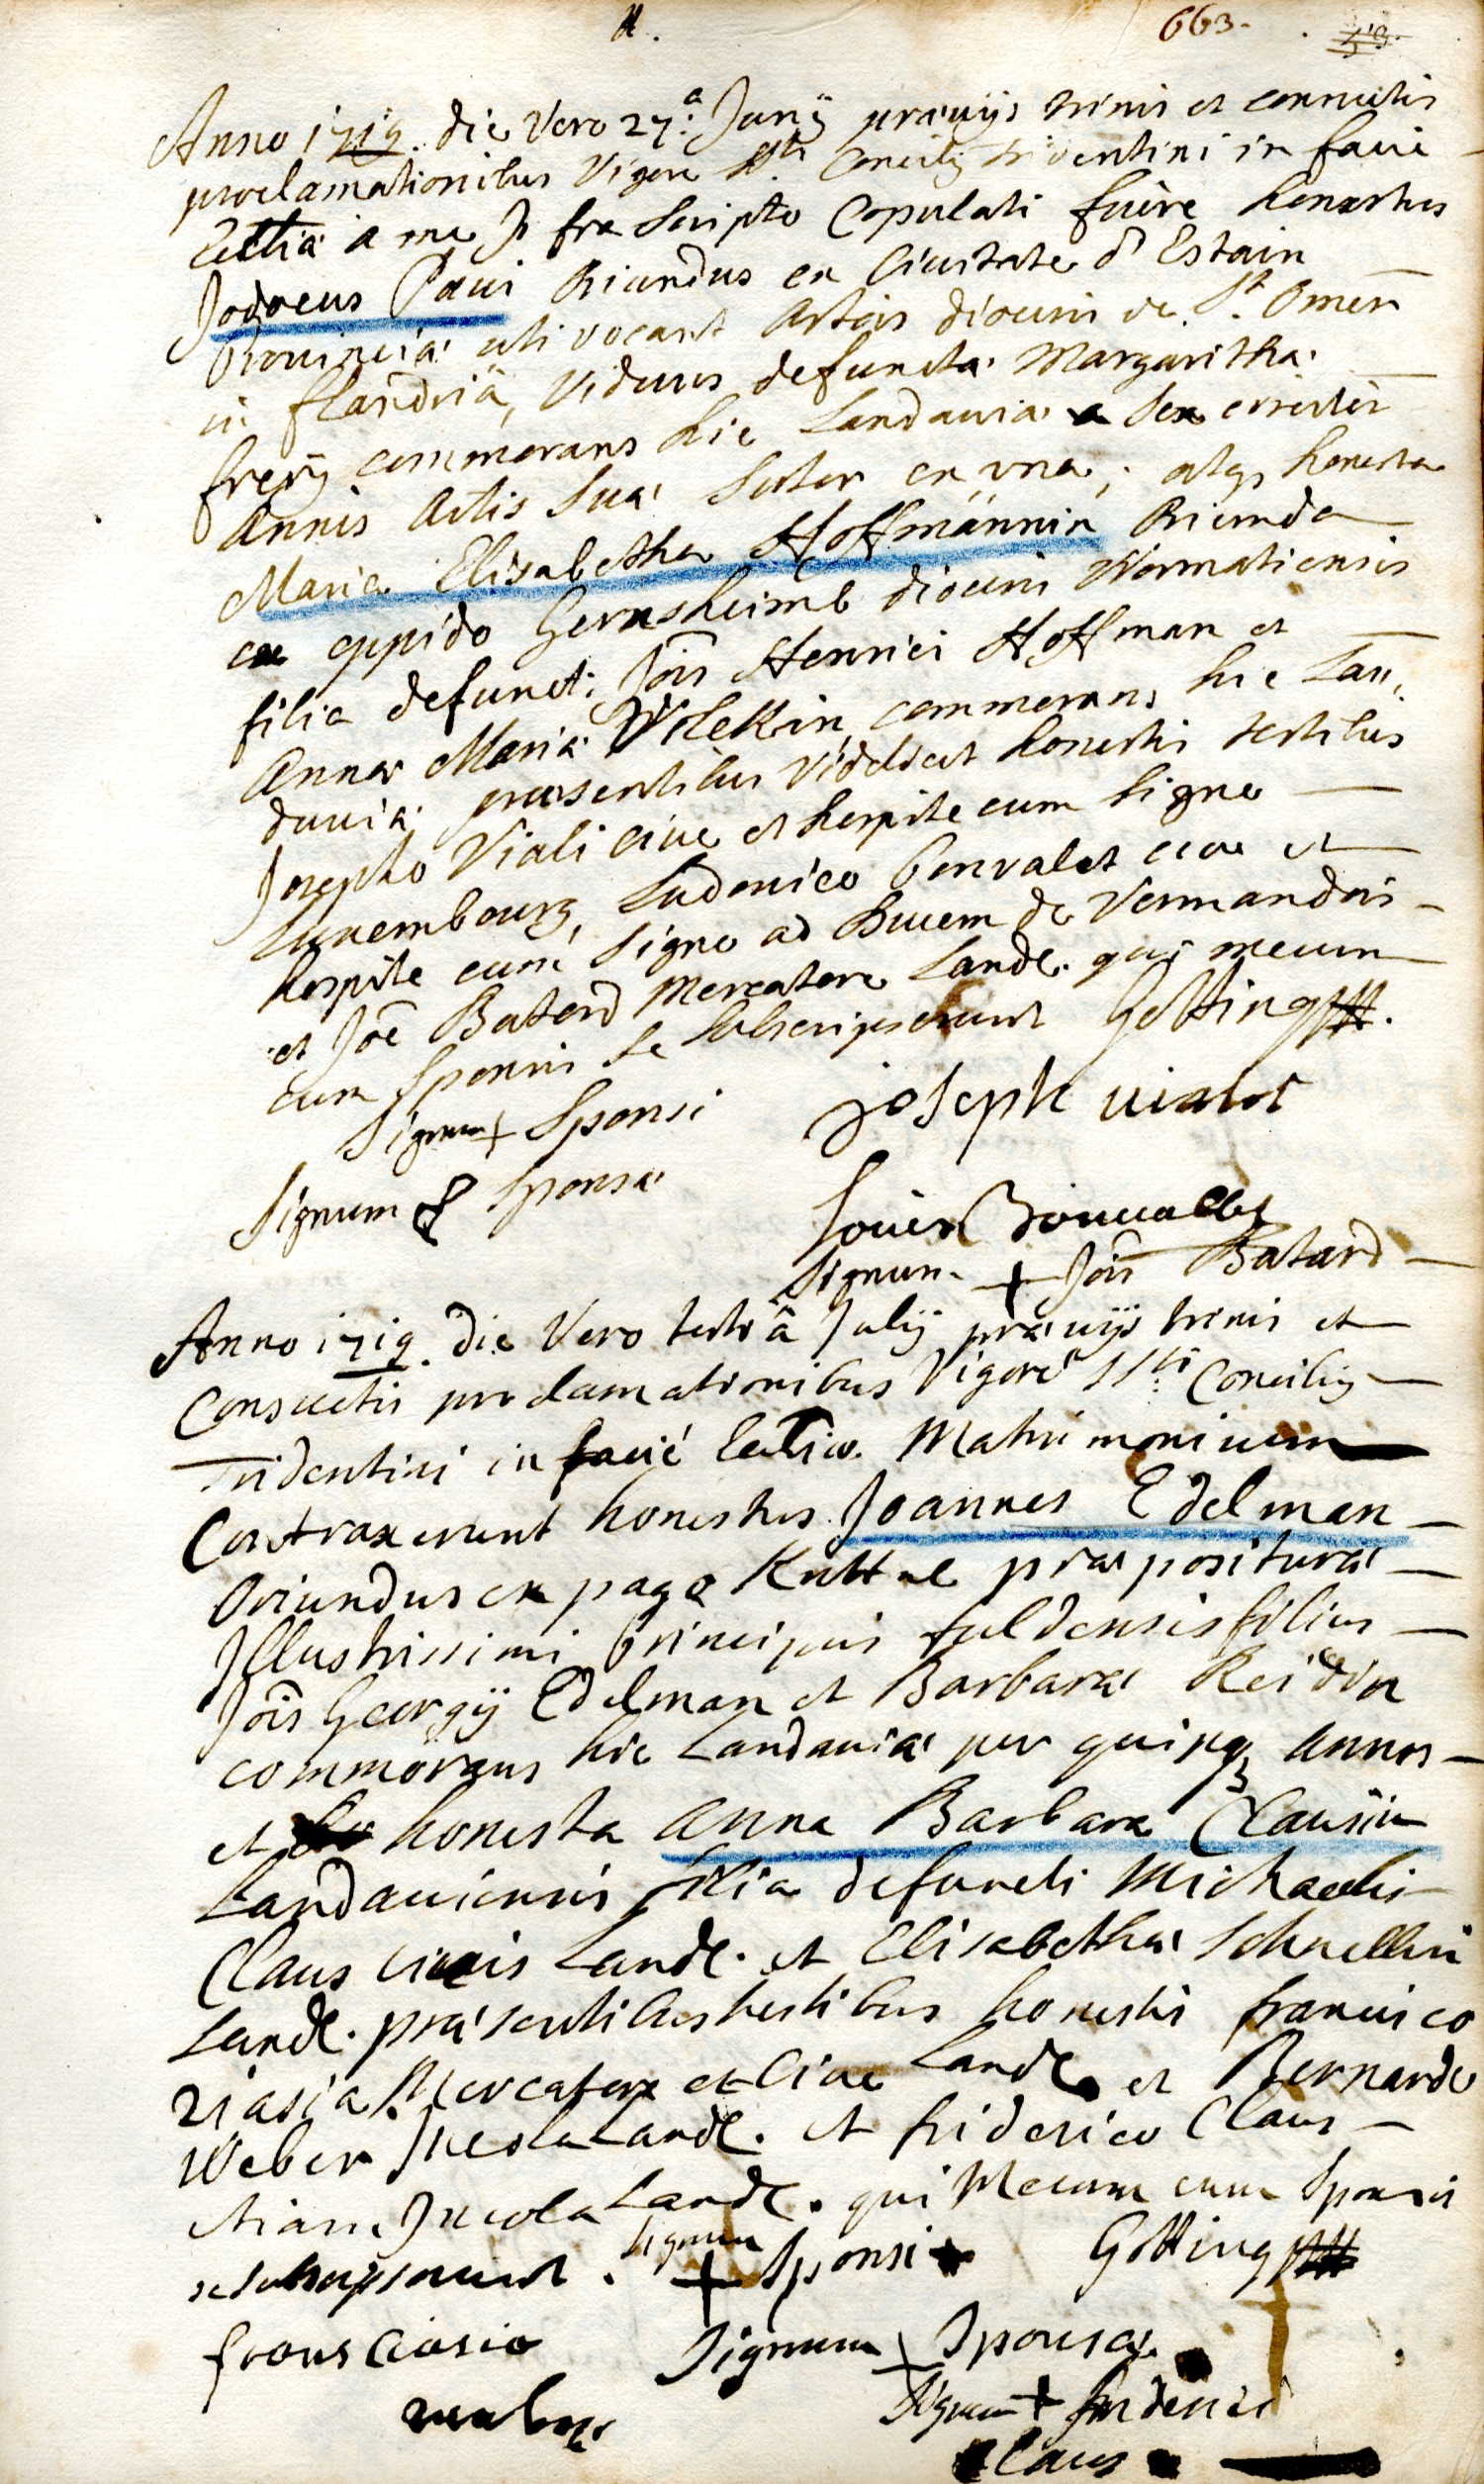 663.
Anno 1719. die Vero 27.a Junÿ præuÿs trinis et consuetis
proclamationibus Vigore Ssti Concilÿ tridentini in facie
Ecclliæ a me Infra Scripto Copulati fuêre honestus
Jodocus Caui Oriundus ex Ciuitate d'Estain
Prouinciæ uti vocant Artois diocesis de St. Omer
in flandriâ, Viduus defunctæ Margarithæ
frerÿ commorans hic Landauiæ a sex circiter
Annis Artis Suæ Sutor ex una, atq, honesta
Maria Elisabetha Hoffmännin Oriunda
ex oppido Gernsheimb diocesis Wormatiensis
filia defuncti Jois Henrici Hoffman et
Annæ Mariæ commorans hic Lan,
dauiæ præsentibus Videlicet honestis testibus
Josepho Viali Ciue et hospite cum Signo
Luxembourg, Ludouico Bonvalet ciue et
hospite cum Signo ad Ducem de Vermandois
et Joe Batard Mercatore Landæ. qui mecum
cum Sponsis se Subscripserunt Götting
Signum + Sponsi joseph vialot
Signum Sponsæ
Louis Bonuallet
Signum + Jois Batard
Anno 1719. die Vero tertiâ Julÿ præuÿs trinis et
Consuetis proclamationibus Vigore SSti Concilÿ
Tridentini in facie Eccliæ Matrimonium
Contraxerunt honestus Joannes Edelman
Oriundus ex pago præposituræ
Illustrissimi Principis fuldensis filius
Jois Georgÿ Edelman et Barbaræ
commorans hic Landauiæ per quinq, annos
et honesta Anna Barbara Clausin
Landauiensis filia defuncti Michaelis
Claus ciuis Landæ. et Elisabethæ Schnellin
Landæ. præsentibus testibus honestis francisco
Mercatore et Ciue Landæ et Bernardo
Weber Incola Landæ. et friderico Claus
etiam Incola Landæ. qui Mecum cum Sponsis
se subscripserunt. Signum + Sponsi Götting
Signum + Sponsæ
Signum + friderici
Claus